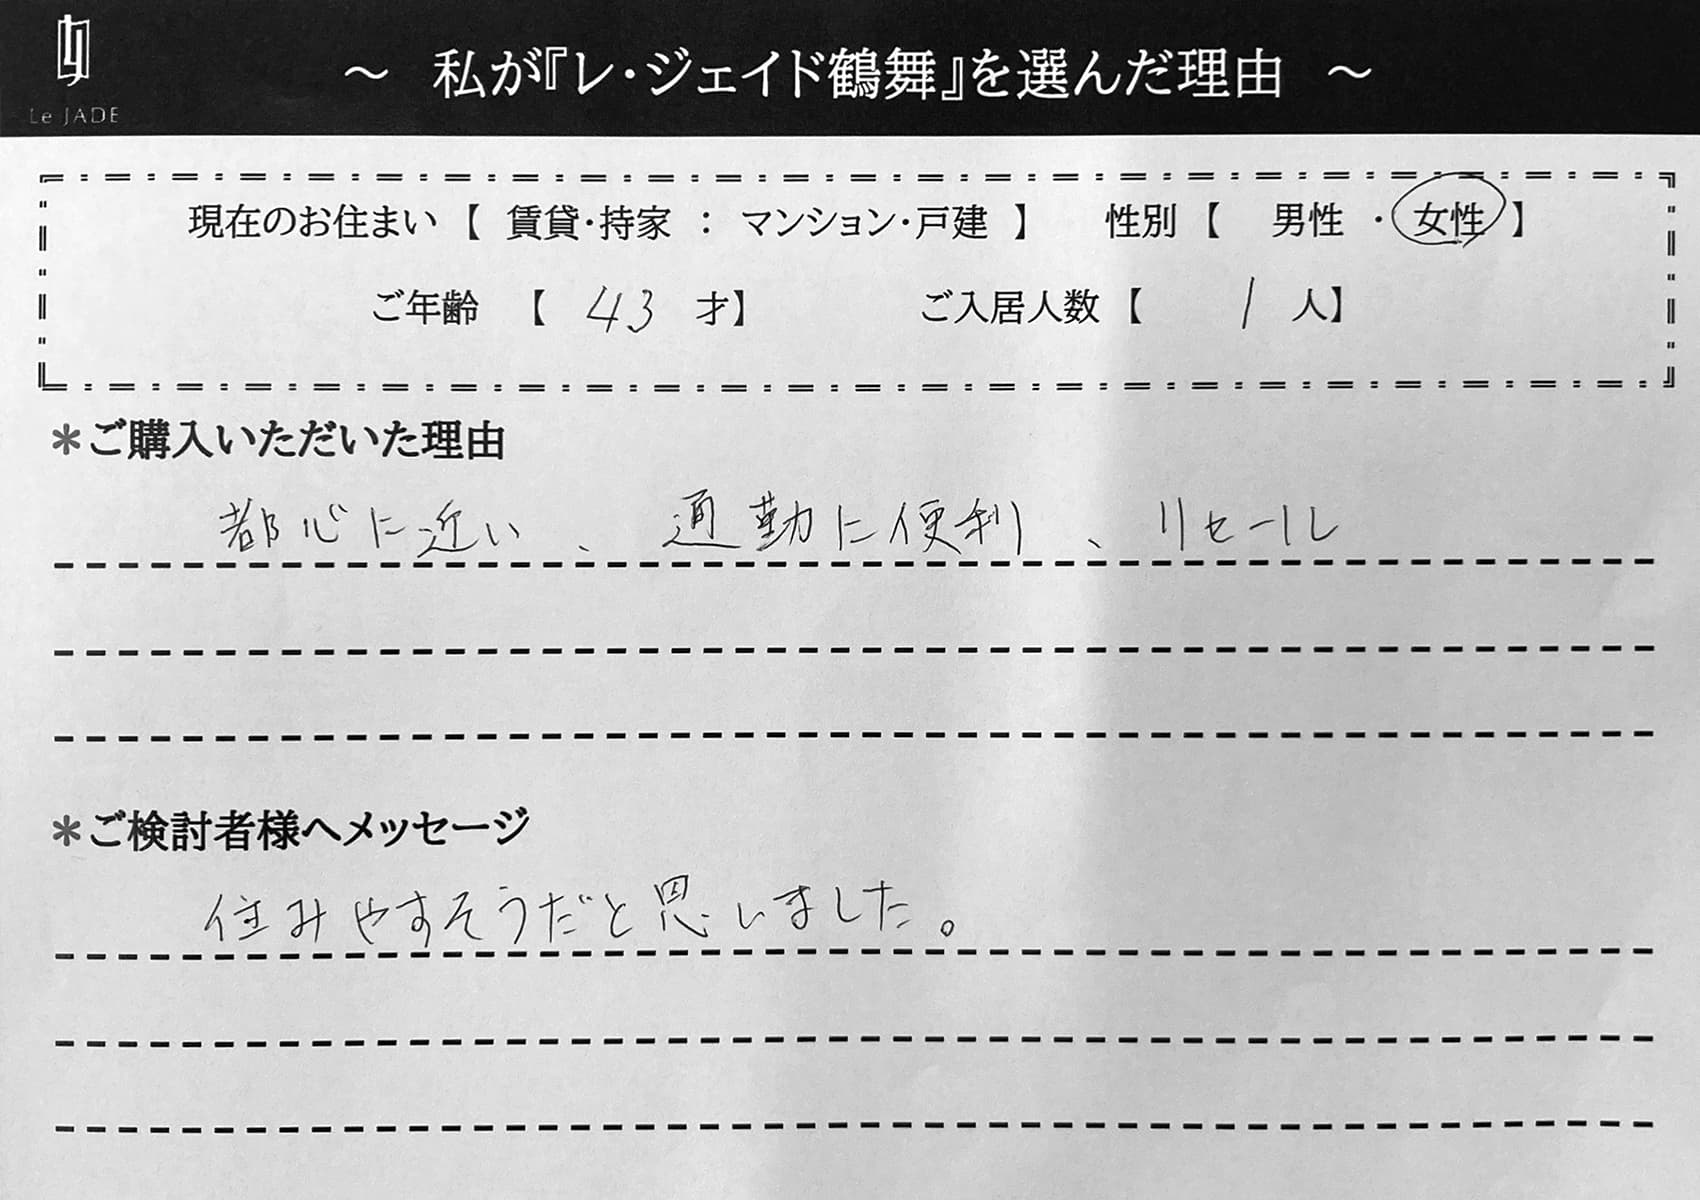 Le JADE
～ 私が『レ・ジェイド鶴舞』を選んだ理由 ～
現在のお住まい【 賃貸・持家 ： マンション・戸建 】 性別【 男性 ・ 女性 】
ご年齢 【 43 才】 ご入居人数【 1 人】
＊ご購入いただいた理由
都心に近い、通勤に便利、リセール
＊ご検討者様へメッセージ
住みやすそうだと思いました。